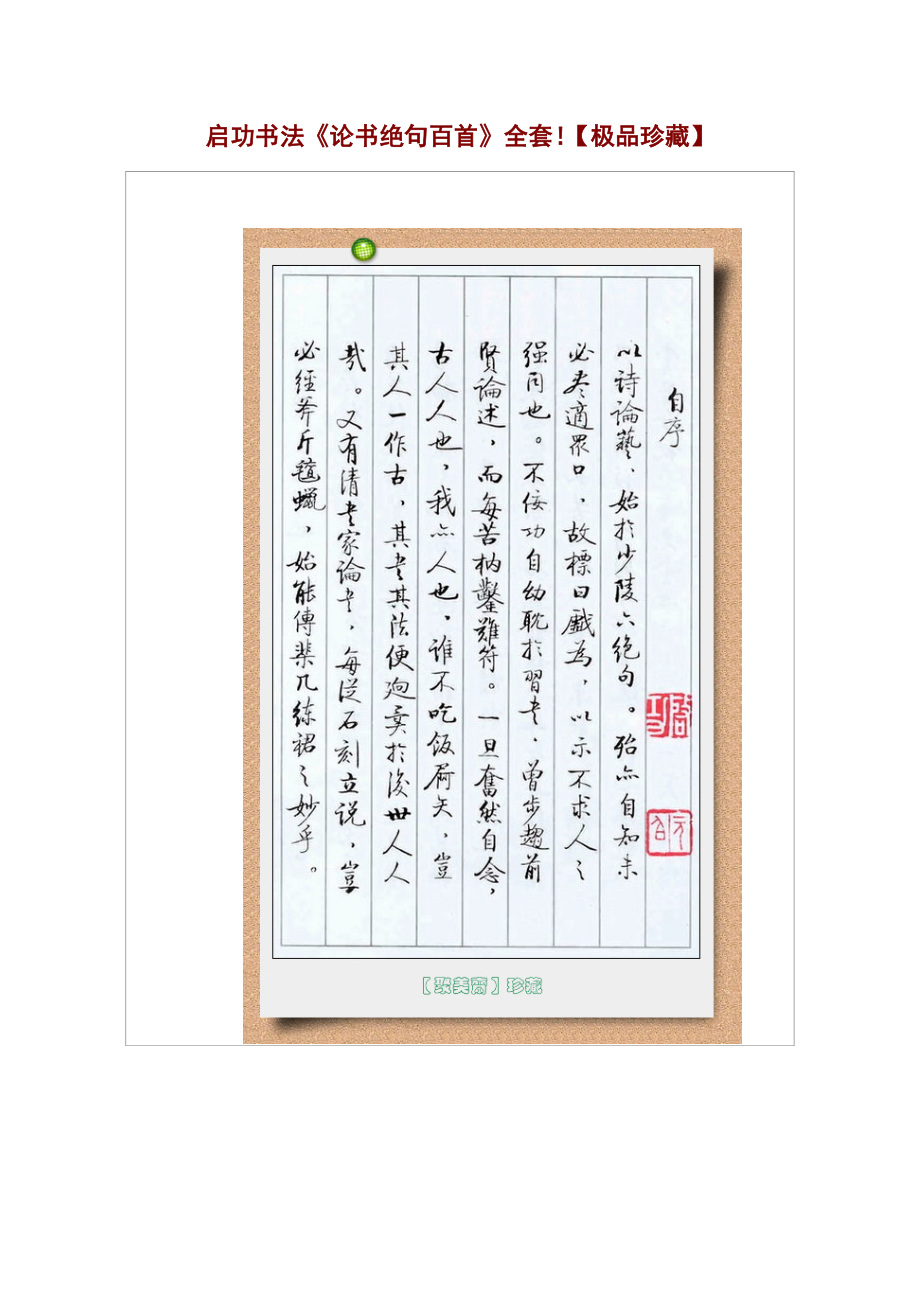 启功书法《论书绝句百首》全套!【极品珍藏】
自序
以詩論藝、始於少陵六絶句。殆亦自知未
必盡適眾口、故標曰戲為，以示不求人之
强同也。不佞功自幼耽於習書、曾步趨前
賢論述，而每苦枘鑿難符。一旦奮然自念，
古人人也，我亦人也、誰不吃飯屙矢、豈
其人一作古，其書其法便迥異於後世人人
哉。又有清書家論書，每從石刻立説，豈
必經斧斤氊蠟，始能傳棐几練裙之妙乎。
啟功
元白
【聚美齋】珍藏